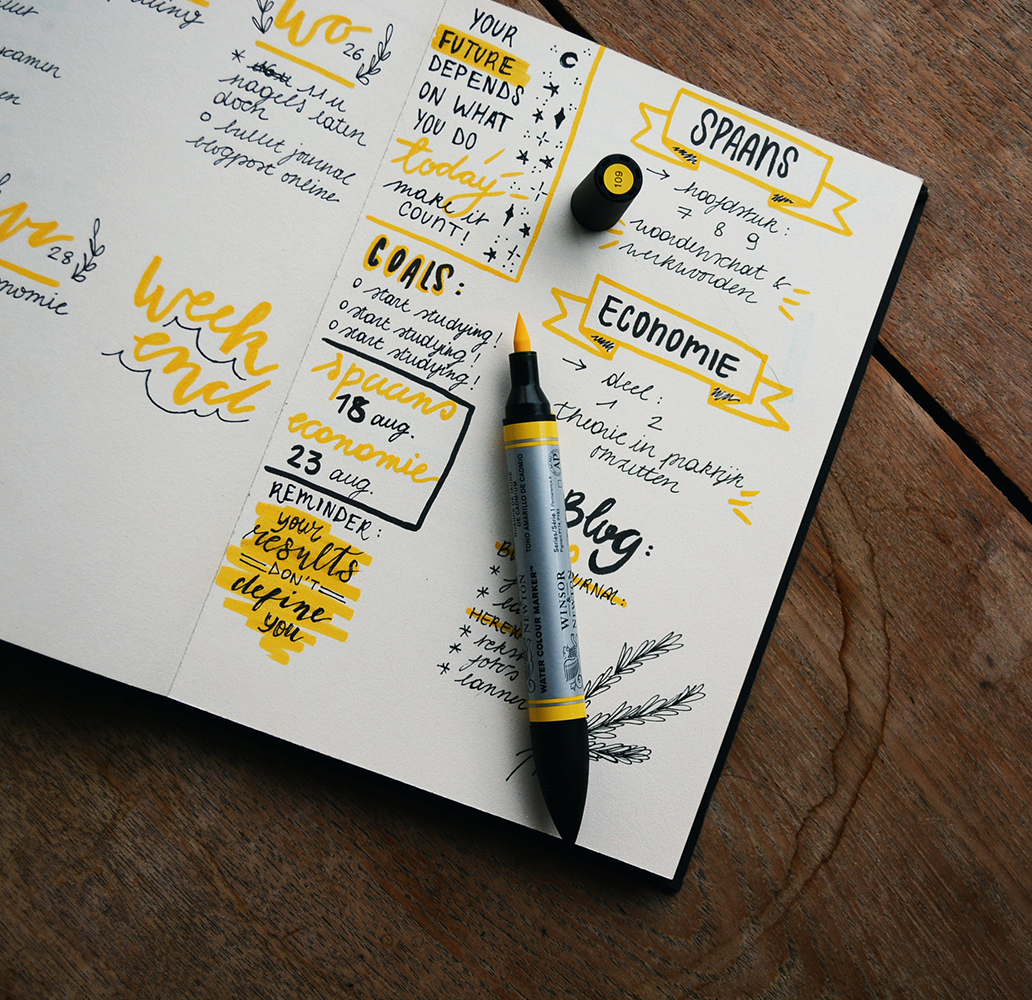 wo
26
* 11 u
nagels laten
doen
o bullet journal
blogpost online
28
week
end
YOUR
FUTURE
DEPENDS
ON WHAT
YOU DO
today
make it
COUNT!
GOALS:
o start studying!
o start studying!
o start studying!
spaans
18 aug.
economie
23 aug.
REMINDER:
your
results
DON'T
define
you
SPAANS
→ hoofdstuk:
7 8 9
woordenschat &
werkwoorden
ECONOMIE
→ deel:
1 2
theorie in praktijk
omzetten
Blog:
*
*
*
* 
*
109
Series/Série 1
AP
WINSOR
& NEWTON
WATER COLOUR MARKER™